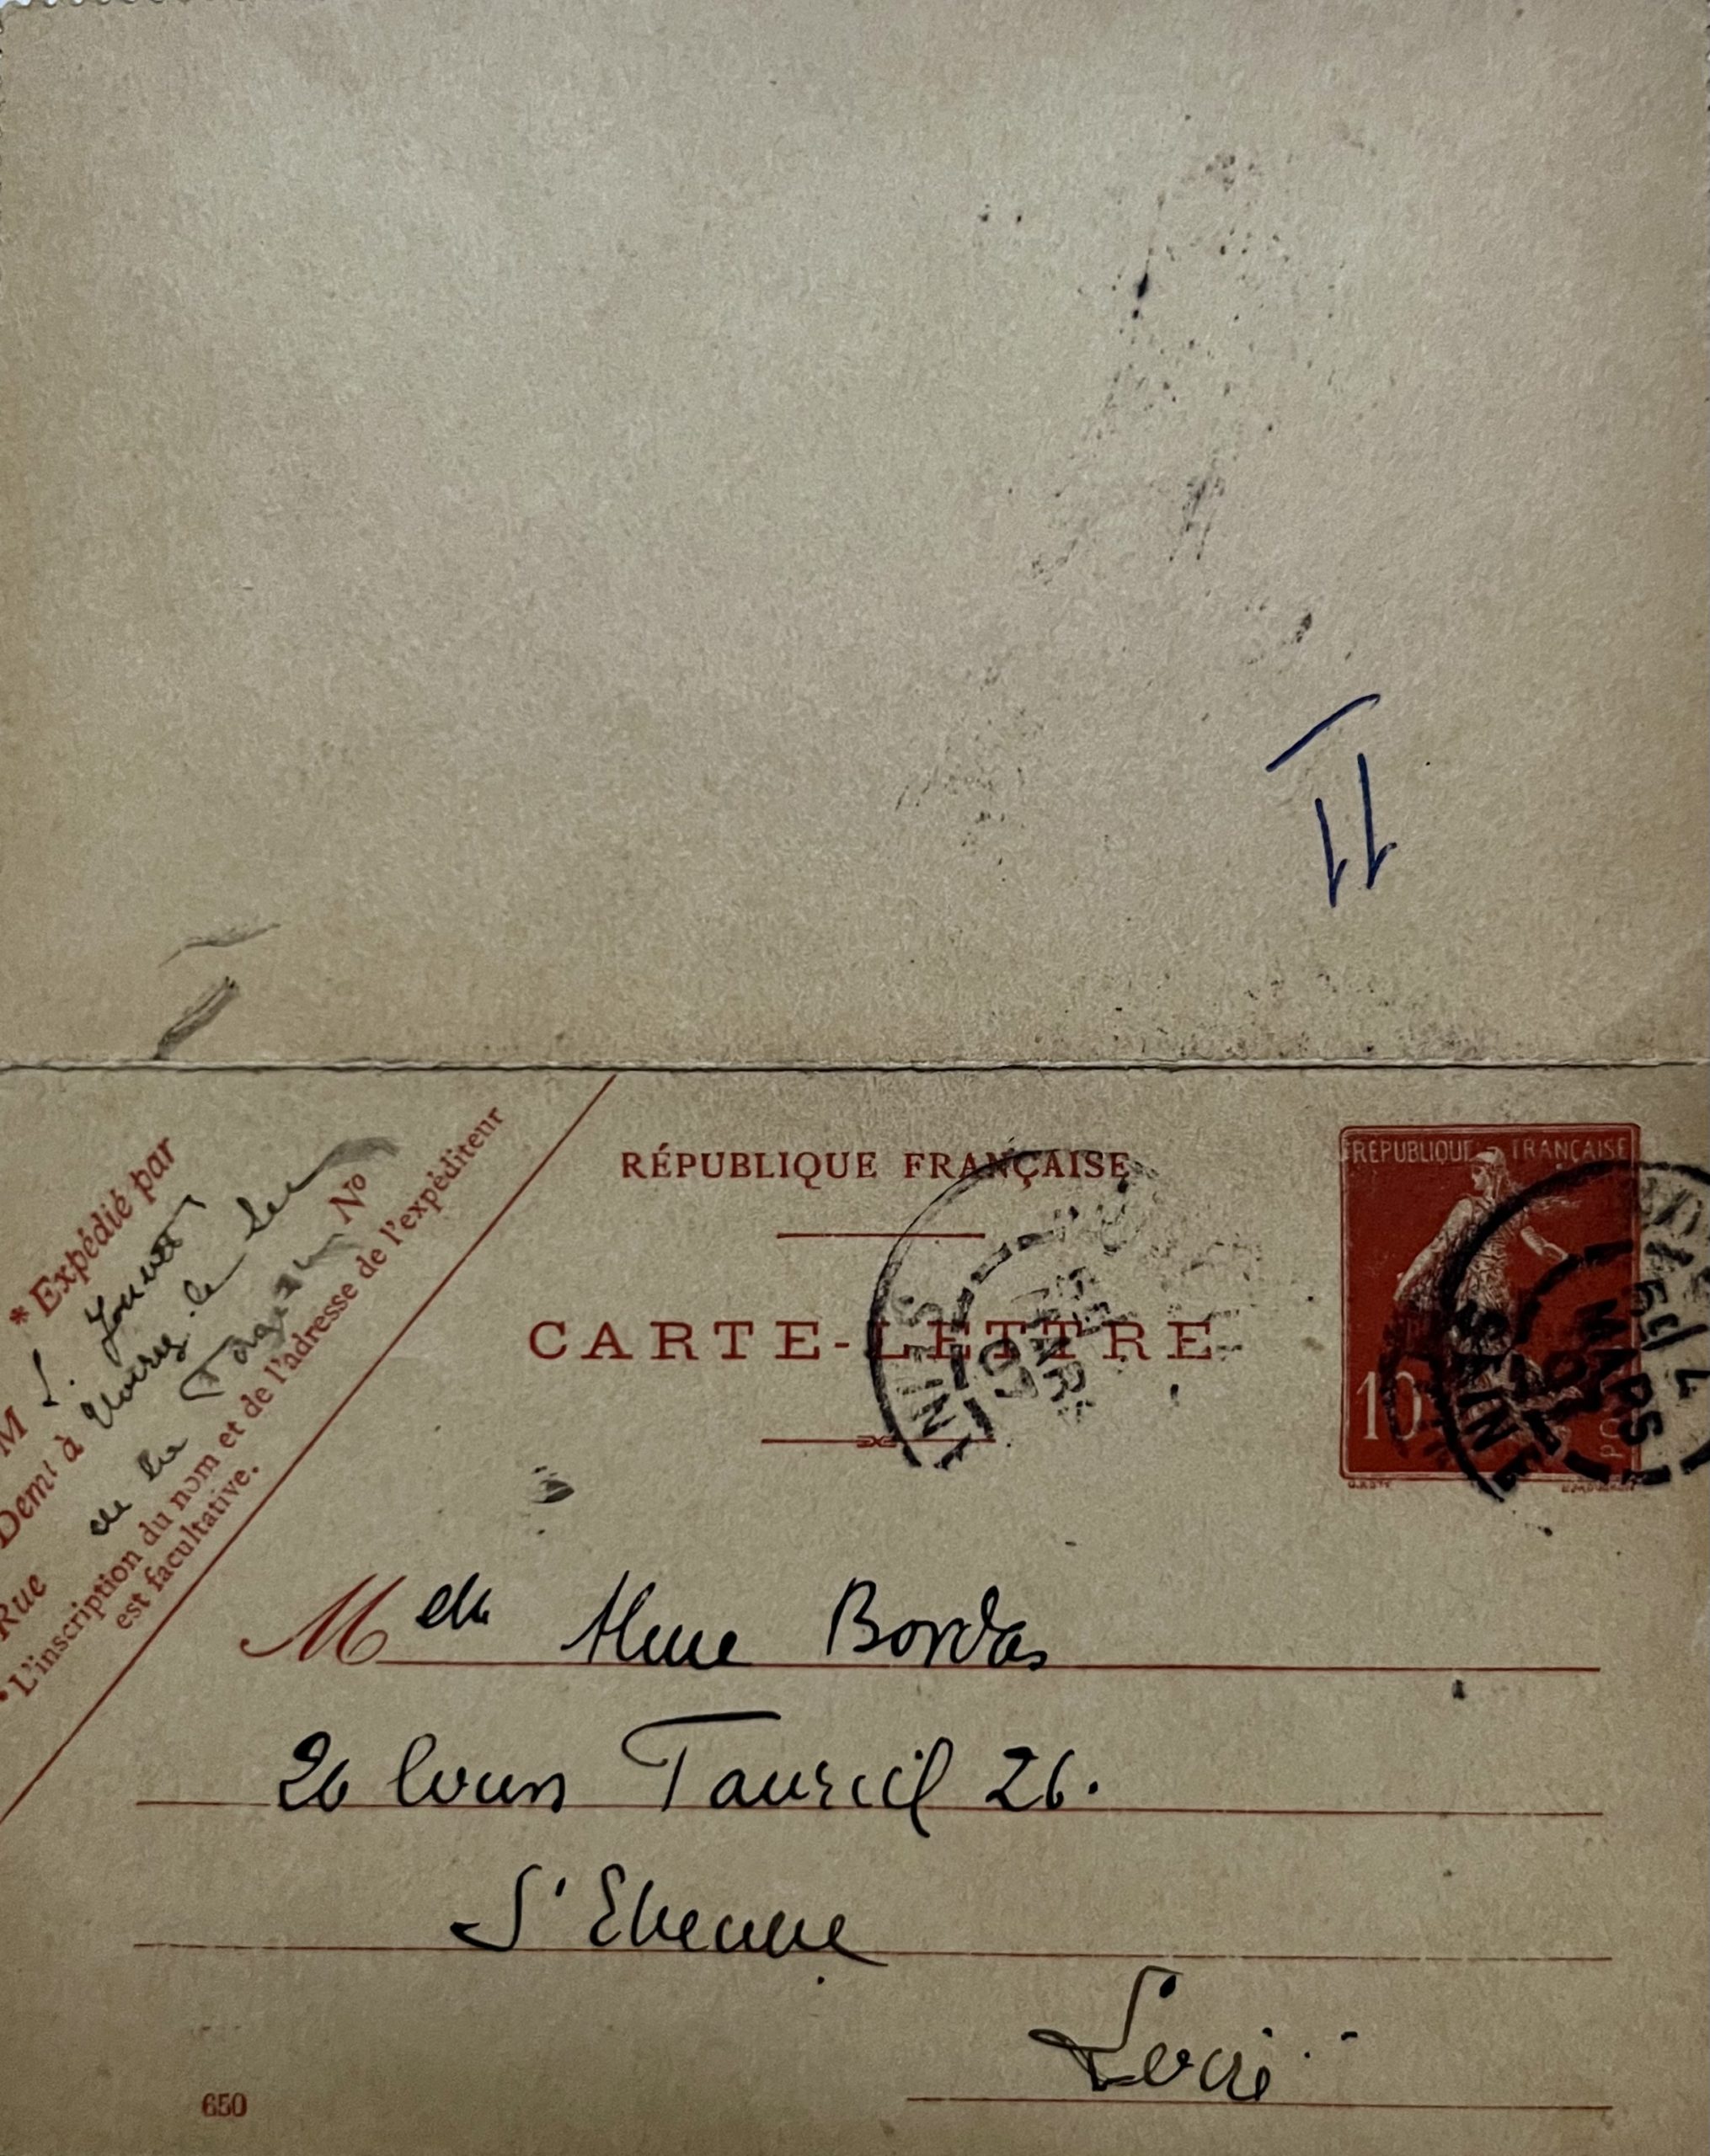 11
RÉPUBLIQUE FRANÇAISE
CARTE-LETTRE
RÉPUBLIQUE FRANÇAISE
10
PO
4
MARS
07
SEINE
MARS
07
SEINE
* Expédié par
M L. Jouvet
Demt à Noisy-le-Sec
Rue de la Nº
* L'inscription du nom et de l'adresse de l'expéditeur
est facultative.
Melle Bordas
26 Cours 26.
St Etienne
Loire
650